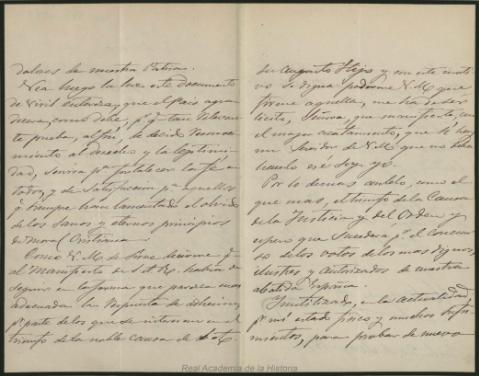 dolores de nuestra Patria.
Vea luego la luz este Documento
de viril entereza, que el Pais agra-
decerá, como debe, pr. qe. tan relevante
prueba, al fin, de decidido
miento al derecho y la legitimi-
dad, servira pa. fortalecer la fé de
todos, y de satisfaccion pa. aquellos
qe. siempre han lamentado el olvido
de los sanos y eternos principios
de moral Cristiana.
Como V.M. se sirve decirme qe.
al Manifiesto de S.A.R. habrá de
seguir en la forma que parezca mas
adecuada la respuesta de
pr. parte de los que se interesan en el
triunfo de la noble causa de S.A.
Su Augusto Hijo y con este moti-
vo se digna pedirme V.M. que
forme aquella, me ha de ser
licito, Señora, que manifieste, con
el mayor acatamiento, que
de V.M. que no
hacerlo ese soy yo.
Por lo demas anhelo, como el
que mas, el triunfo de la Causa
de la Justicia y del Orden y
espero que sucederá pr. el Concur-
so de los votos de los mas dignos,
ilustres y autorizados de nuestra
abatida España.
Inutilizado, en la actualidad
pr. mi estado fisico y muchos sufri-
mientos, para probar de nuevo
Real Academia de la Historia